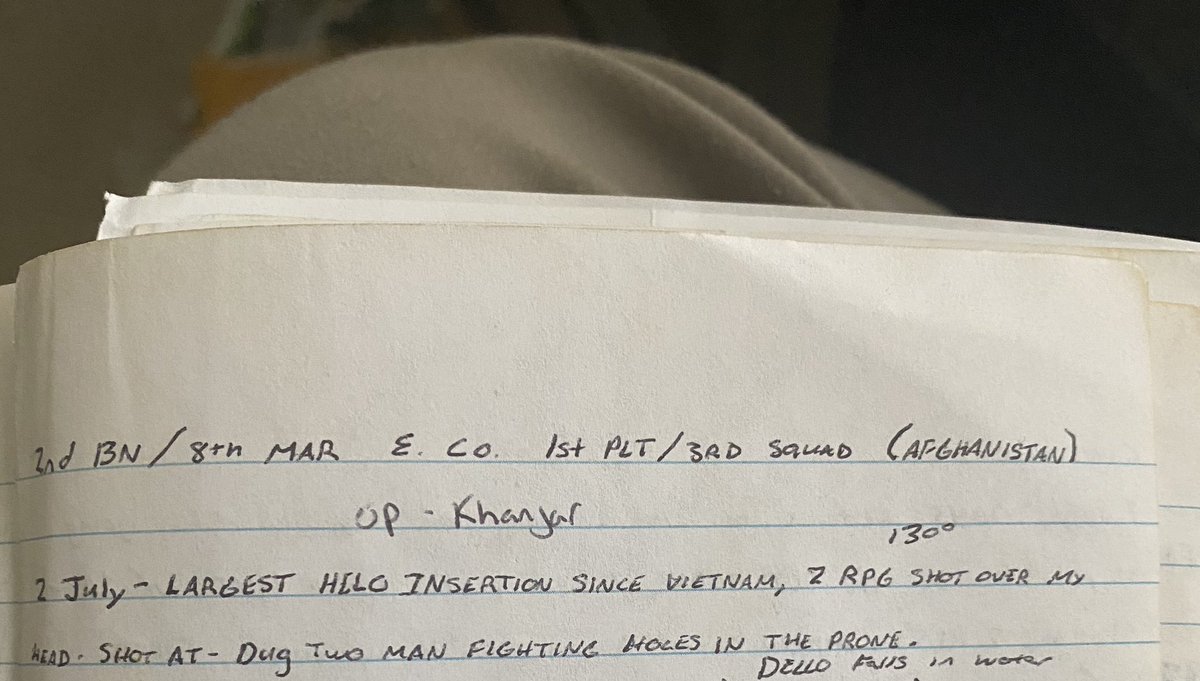 2nd BN/8th MAR E. Co. 1st PLT/3RD SQUAD (AFGHANISTAN)
OP - Khanjar
130°
2 July - LARGEST HILO INSERTION SINCE VIETNAM, 2 RPG SHOT OVER MY
HEAD. SHOT AT - Dug TWO MAN FIGHTING HOLES IN THE PRONE.
DELLO Falls in water